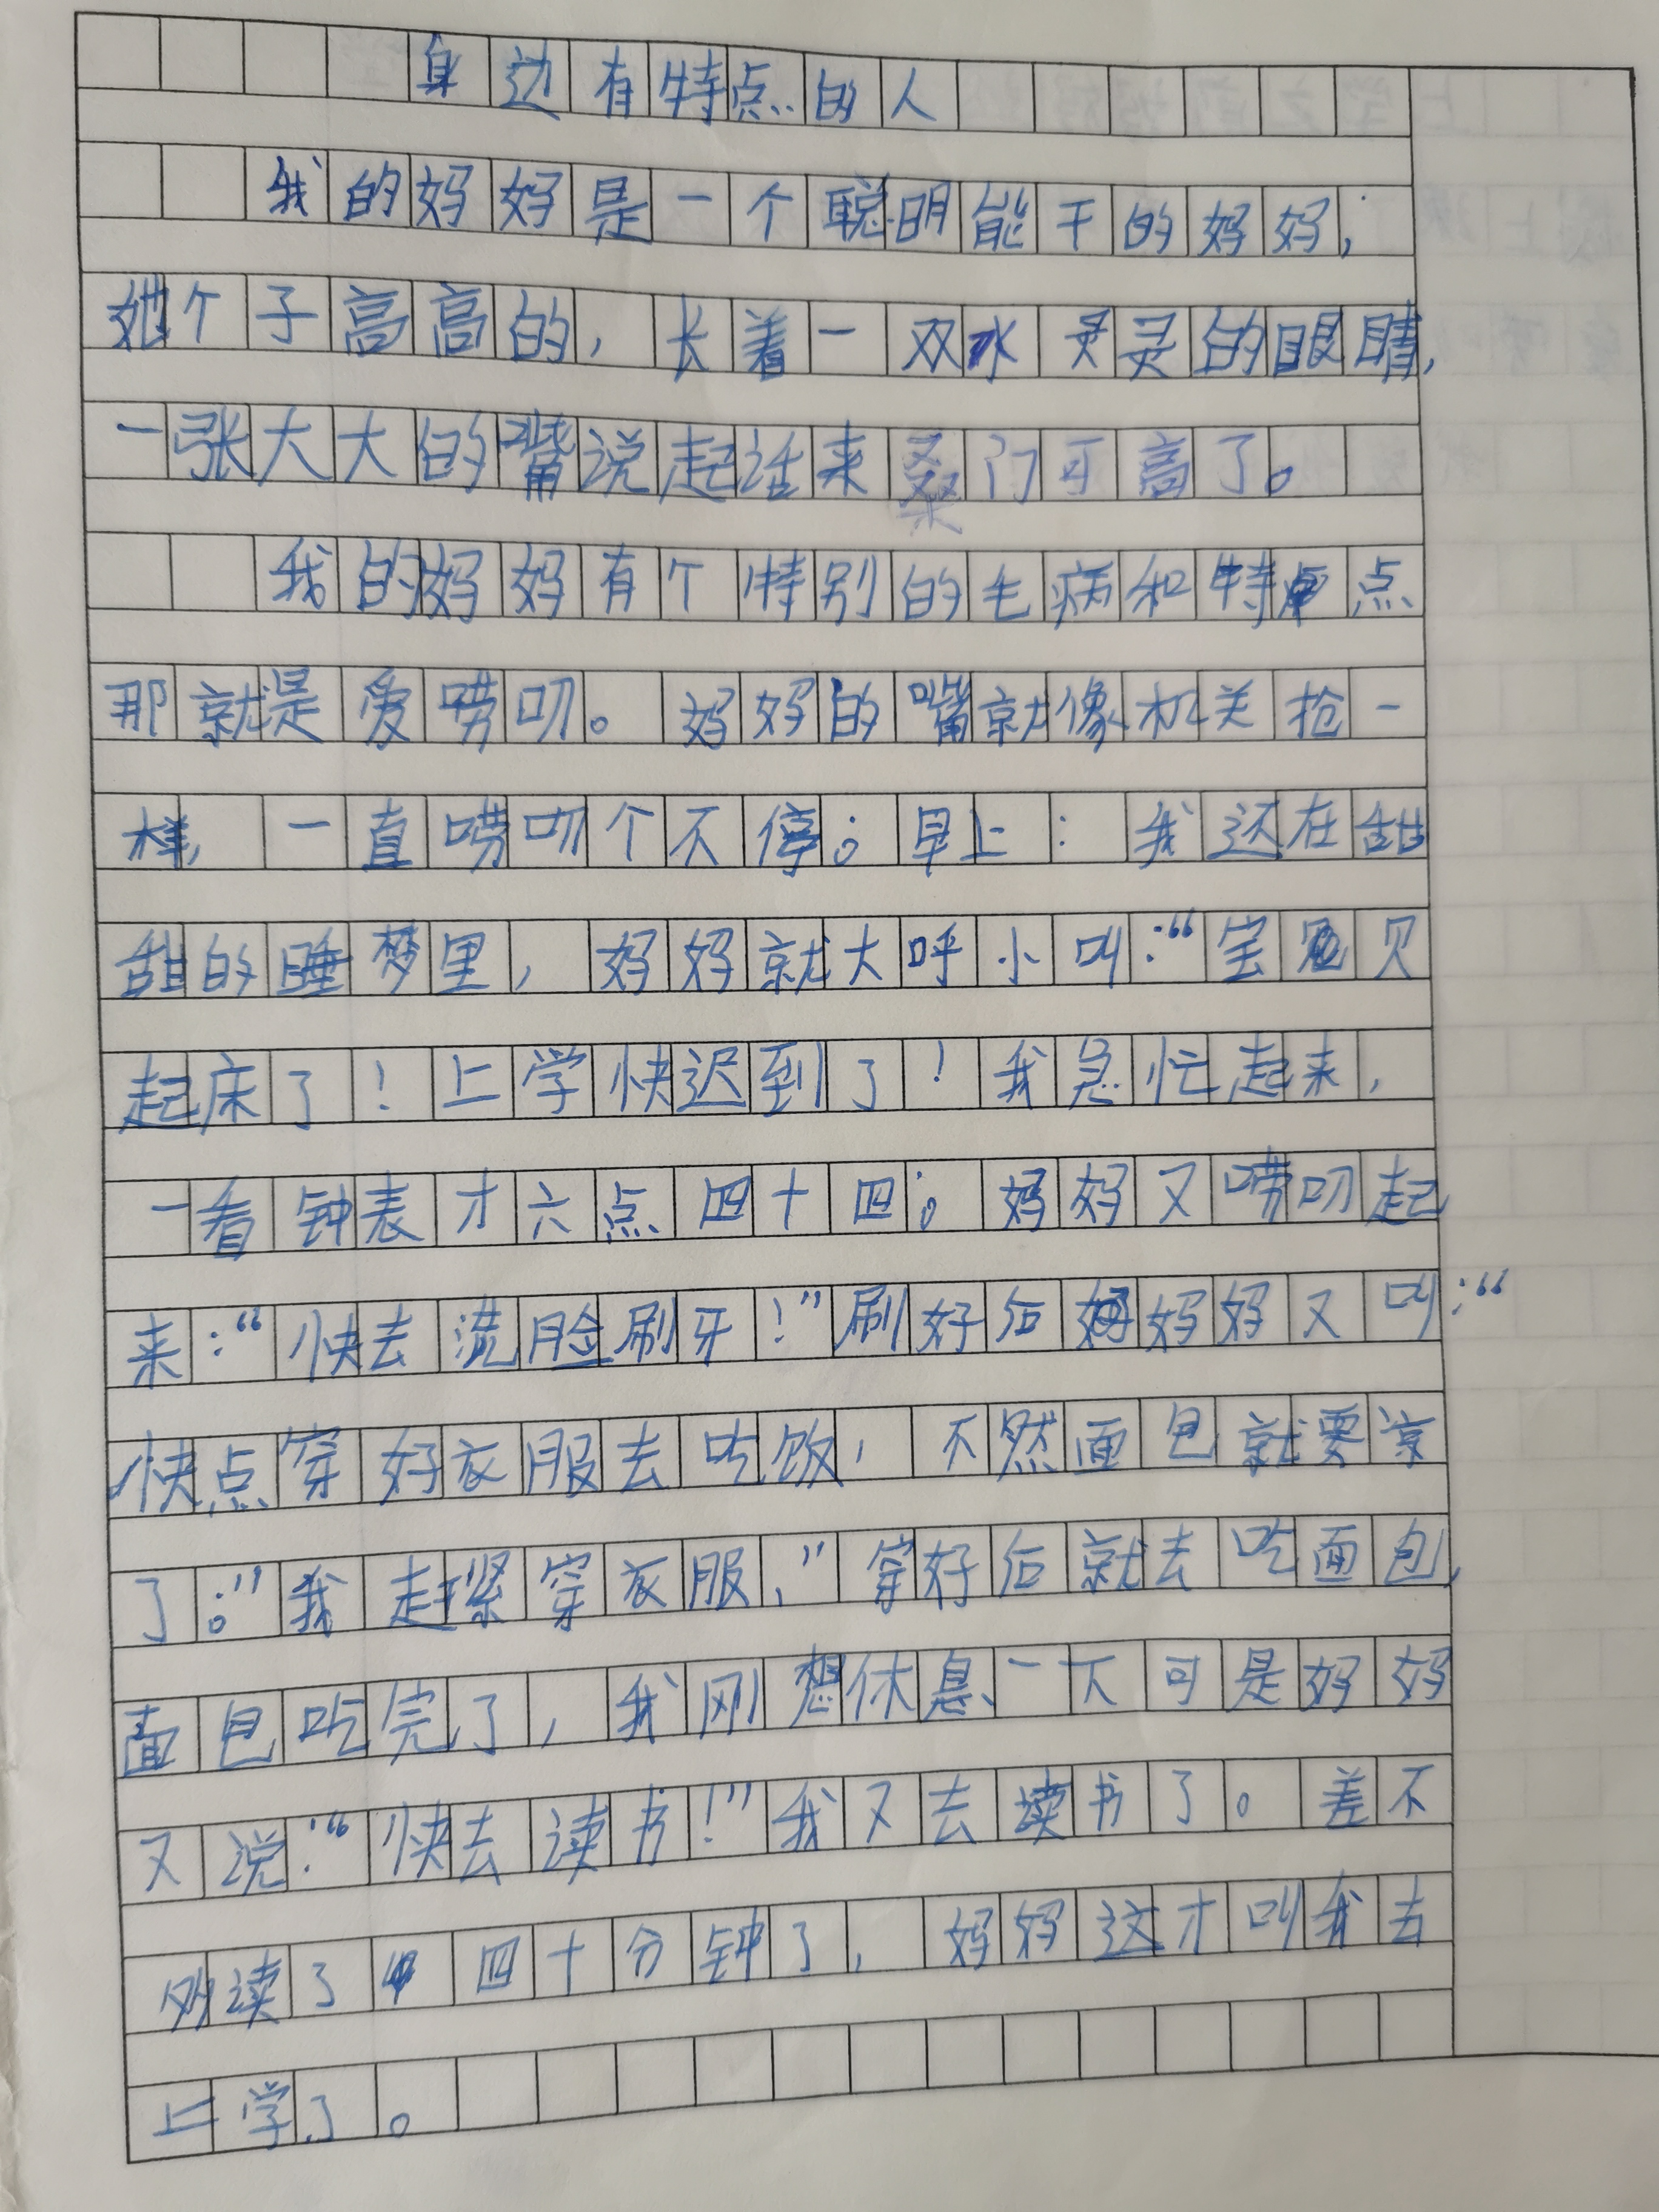 身边有特点的人
我的妈妈是一个聪明能干的妈妈，
她个子高高的，长着一双水灵灵的眼睛，
一张大大的嘴说起话来桑门可高了。
我的妈妈有个特别的毛病和特点
那就是爱唠叨。妈妈的嘴就像机关抢一
样，一直唠叨个不停。早上：我还在甜
甜的睡梦里，妈妈就大呼小叫：“宝贝
起床了！上学快迟到了！我急忙起来，
一看钟表才六点四十四。妈妈又唠叨起
来：“快去洗脸刷牙！”刷好后妈妈又叫：“
快点穿好衣服去吃饭，不然面包就要凉
了。”我赶紧穿衣服，”穿好后就去吃面包，
面包吃完了，我刚想休息一下可是妈妈
又说：“快去读书！”我又去读书了。差不
多读了四十分钟了，妈妈这才叫我去
上学了。